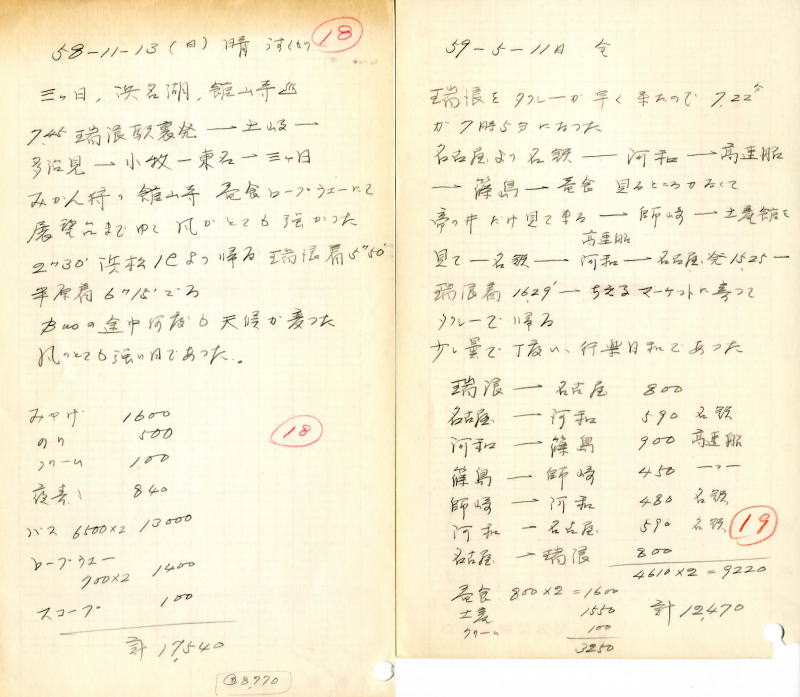 58-11-13(日) 晴
18
三ヶ日、浜名湖、舘山寺♨
7.45 瑞浪駅裏発 ー 土岐 ー
多治見 → 小牧 ー 東名 → 三ヶ日
みかん狩り 舘山寺 昼食 ロープウェーにて
展望台まで ゆく 風がとても強かった
2"30' 浜松ICより帰る 瑞浪着5"50'
半原着 6"15'である
Busの途中何度も天候が変った
風のとても強い日であった。
みやげ 1600
のり 500
クリーム 100
18
840
バス 6500×2 13000
ロープウエー
700×2 1400
スコープ 100
計 17,540
③8,770
59-5-11日
瑞浪を タクシーが早く来たので 7.22分
が7時5分になった
名古屋より名鉄 ー 河和 → 高速船
→ 篠島 → 昼食 見るところがなくて
帝の井だけ見て来る → 師崎 → 土産館を
見て ー 名鉄 ー 河和 → 名古屋発1525 ー
高速船
瑞浪着 16.29' ー ちえるマーケットに寄って
タクシーで帰る
少し曇で丁度いい、行楽日和であった
瑞浪 → 名古屋 800
名古屋 → 河和 590 名鉄
河和 → 篠島 900 高速船
篠島 → 師崎 450 ー〃ー
師崎 → 河和 480 名鉄
河和 → 名古屋 590 名鉄
19
名古屋 → 瑞浪 800
4610×2=9220
昼食 800×2=1600
土産 1550
計 12,470
クリーム 100
3250